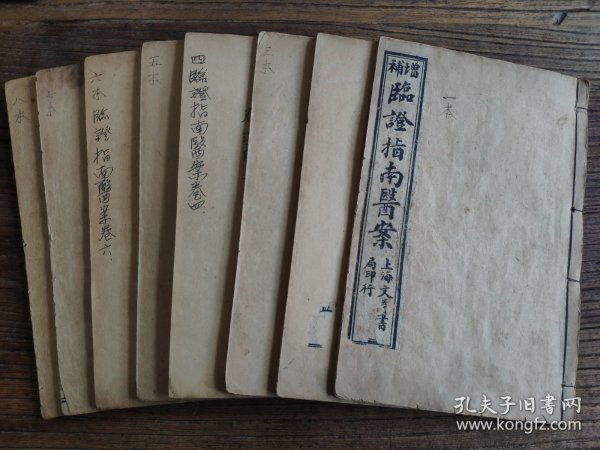 增補
臨證指南醫案
上海文瑞書
局印行
一本
三本
四臨證指南醫案卷四
五本
六本 臨證指南醫案卷六
七本
八本
孔夫子旧书网
www.kongfz.com